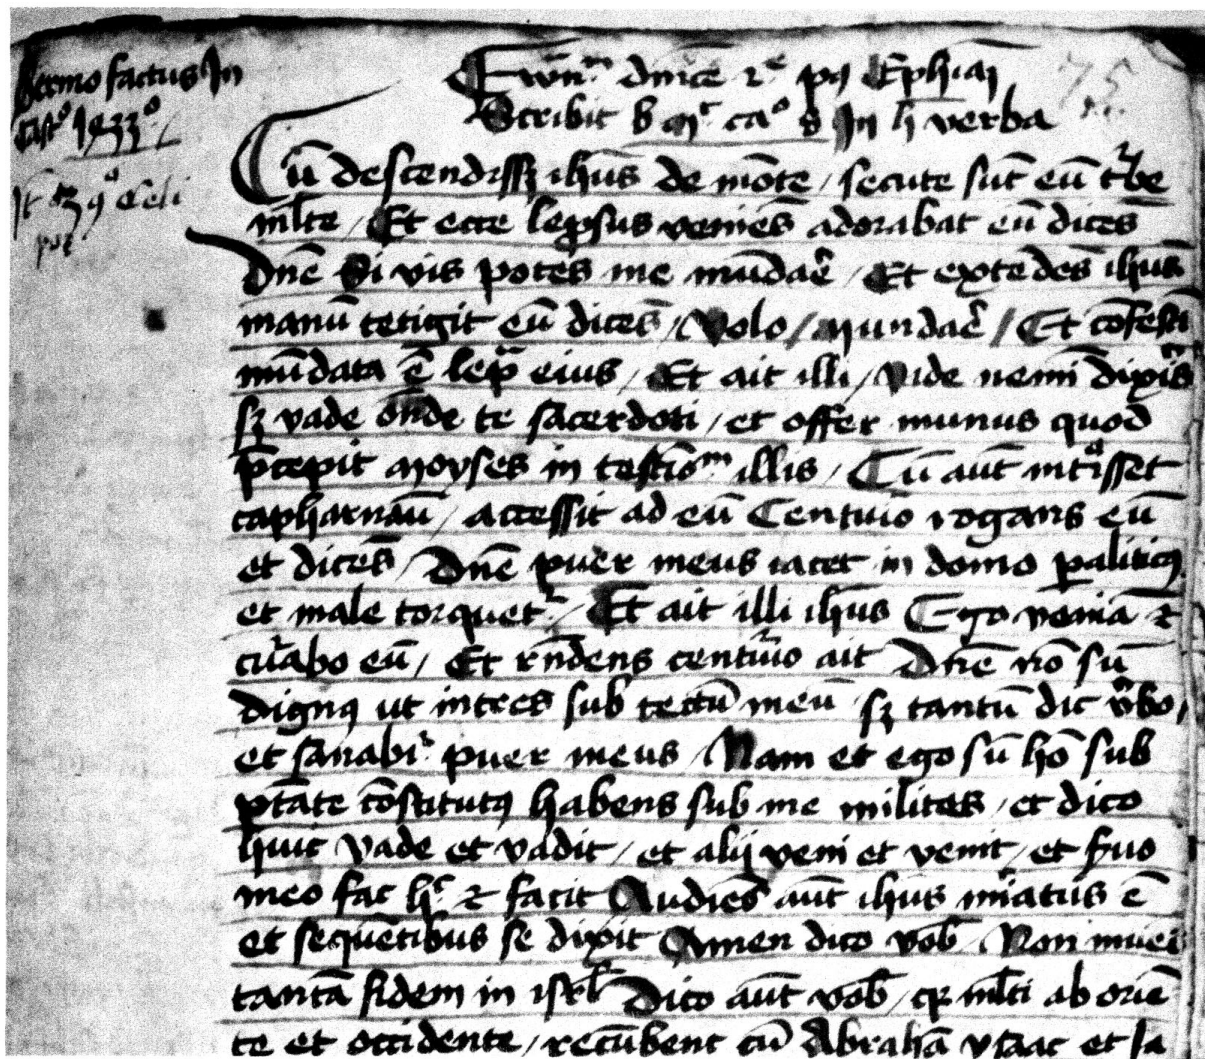 Sermo factus In
Castº 1433º
Ewn̄m dnice 2e pq Ephiaɿ
Scribit b Mt caº 8 In h̄ verba
Cū descendissꝫ ihūs de mōte / secute sūt eū t̾be
ml̄te / Et ecce leprsus veniēs adorabat eū dicēs
Dn̄e Si vis potes me mūdar̄e / Et extēdēs ihūs
manū tetigit eū dicēs / Volo / Mundar̄e / Et cōfestī
mūdata ē lepª eius / Et ait illi / Vide nemī dix̄is
sꝫ vade ōnde te sacerdoti / et offer munus quod
p̄cepit Moyses in testīoᵐ illis / Cū aūt intªsset
capharnaū / Accessit ad eū Centuio rogans eū
et dicēs / Dn̄e puer meus iacet in domo paliticꝰ
et male torquet᷑ / Et ait illi ihūs Ego veniā ⁊
cu͛abo eū / Et rn̄dens centu͛io ait Dn̄e nō sū
dignꝰ ut intres sub tectū meū sꝫ tantū dic v̾bo /
et sanabi᷑ puer meus / Nam et ego sū hō sub
ptāte cōstitutꝰ habens sub me milites / et dico
huic Vade et vadit / et alij veni et venit / et s̾uo
meo fac hᶜ ⁊ facit Audiēs aūt ihūs mi͛atus ē
et sequētibus se dixit Amen dico vob̄ / Non inuei
tantā fidem in isrl̄ Dico aūt vob̄ / qꝛ ml̄ti ab oriē
te et occidente / recūbent cū Abrahā ysaac et Ia